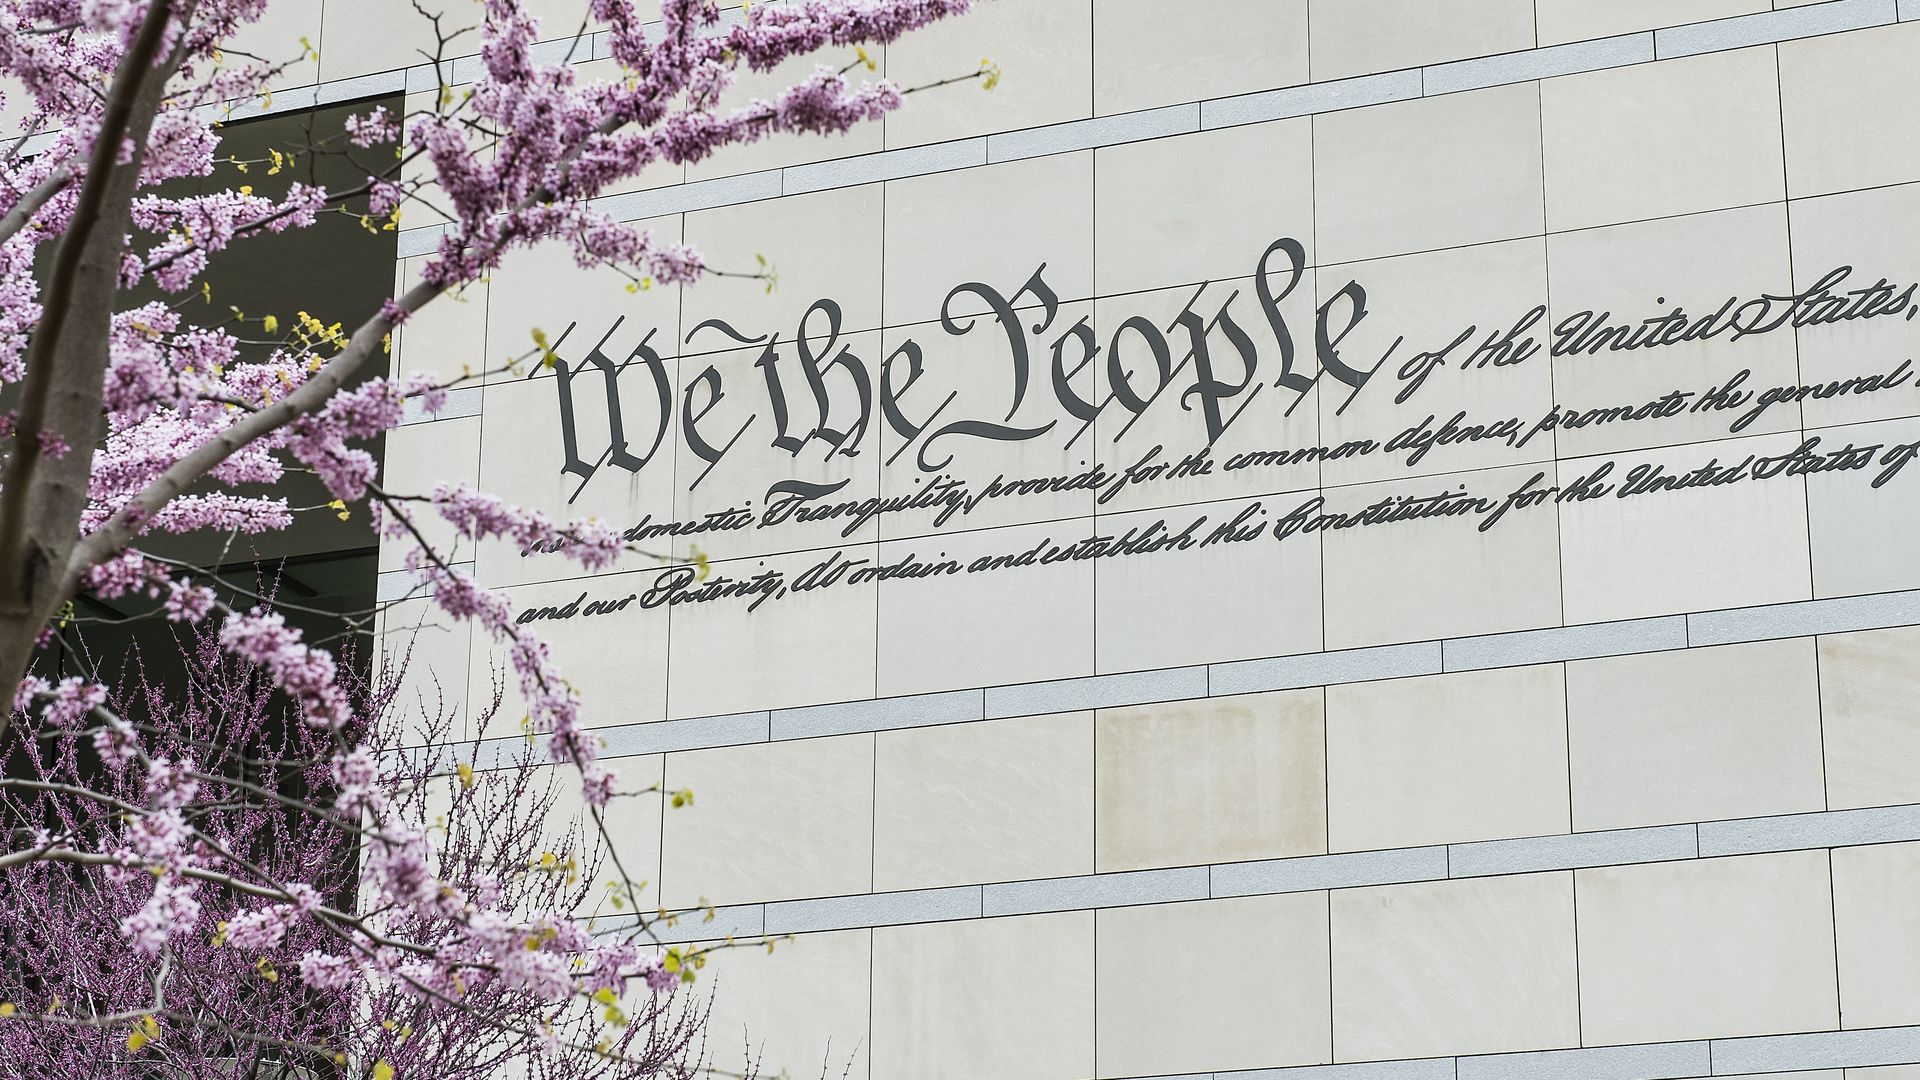 We the People of the United States,
domestic Tranquility, provide for the common defence, promote the general
and our Posterity, do ordain and establish this Constitution for the United States of